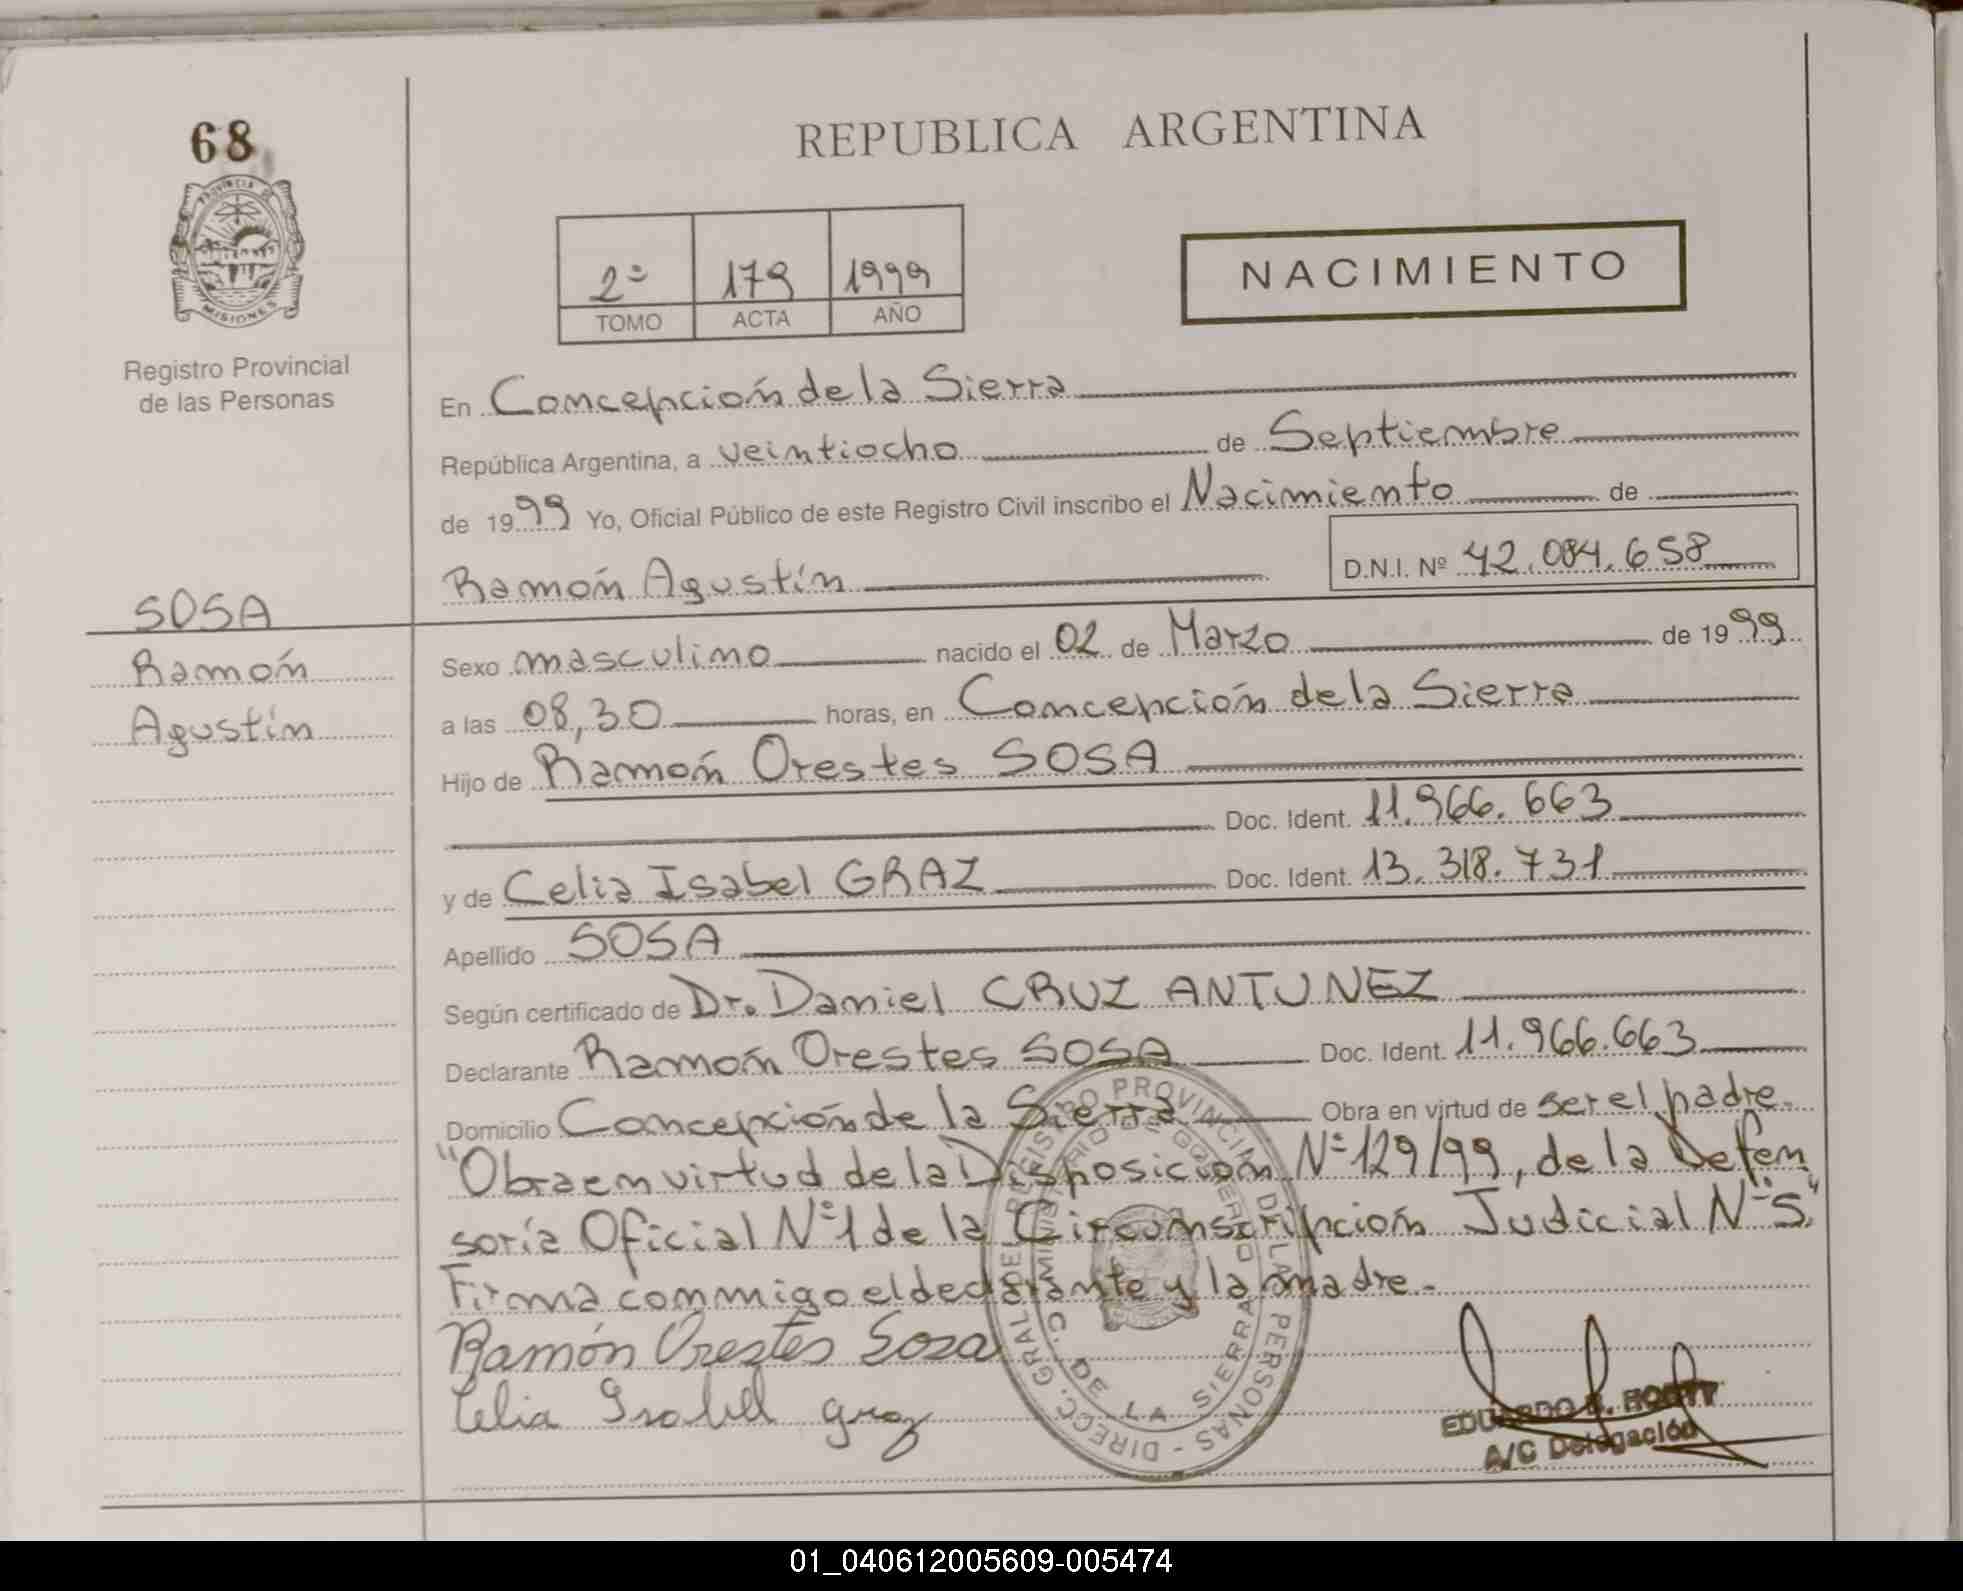 68
PROVINCIA DE
MISIONES
Registro Provincial
de las Personas
REPUBLICA ARGENTINA
2º 179 1999
TOMO ACTA AÑO
NACIMIENTO
En Concepción de la Sierra
República Argentina, a veintiocho de Septiembre
de 1999 Yo, Oficial Público de este Registro Civil inscribo el Nacimiento de
Ramón Agustín D.N.I. Nº 42.084.658
SOSA
Ramón
Agustín
Sexo masculino nacido el 02 de Marzo de 1999
a las 08,30 horas, en Concepción de la Sierra
Hijo de Ramón Orestes SOSA
Doc. Ident. 11.966.663
y de Celia Isabel GRAZ Doc. Ident. 13.318.731
Apellido SOSA
Según certificado de Dr. Daniel CRUZ ANTUNEZ
Declarante Ramón Orestes SOSA Doc. Ident. 11.966.663
Domicilio Concepción de la Sierra Obra en virtud de ser el padre.
"Obra en virtud de la Disposición Nº 129/99, de la Defen
soría Oficial Nº 1 de la Circunscripción Judicial Nº 5."
Firma conmigo el declarante y la madre.-
Ramón Orestes Sosa
Celia Isabel Graz
DIRECC. GRAL DEL REGISTRO PROVINCIAL DE LAS PERSONAS -
MINISTERIO DE GOBIERNO
C. DE LA SIERRA
EDUARDO
A/C Delegación
01_040612005609-005474